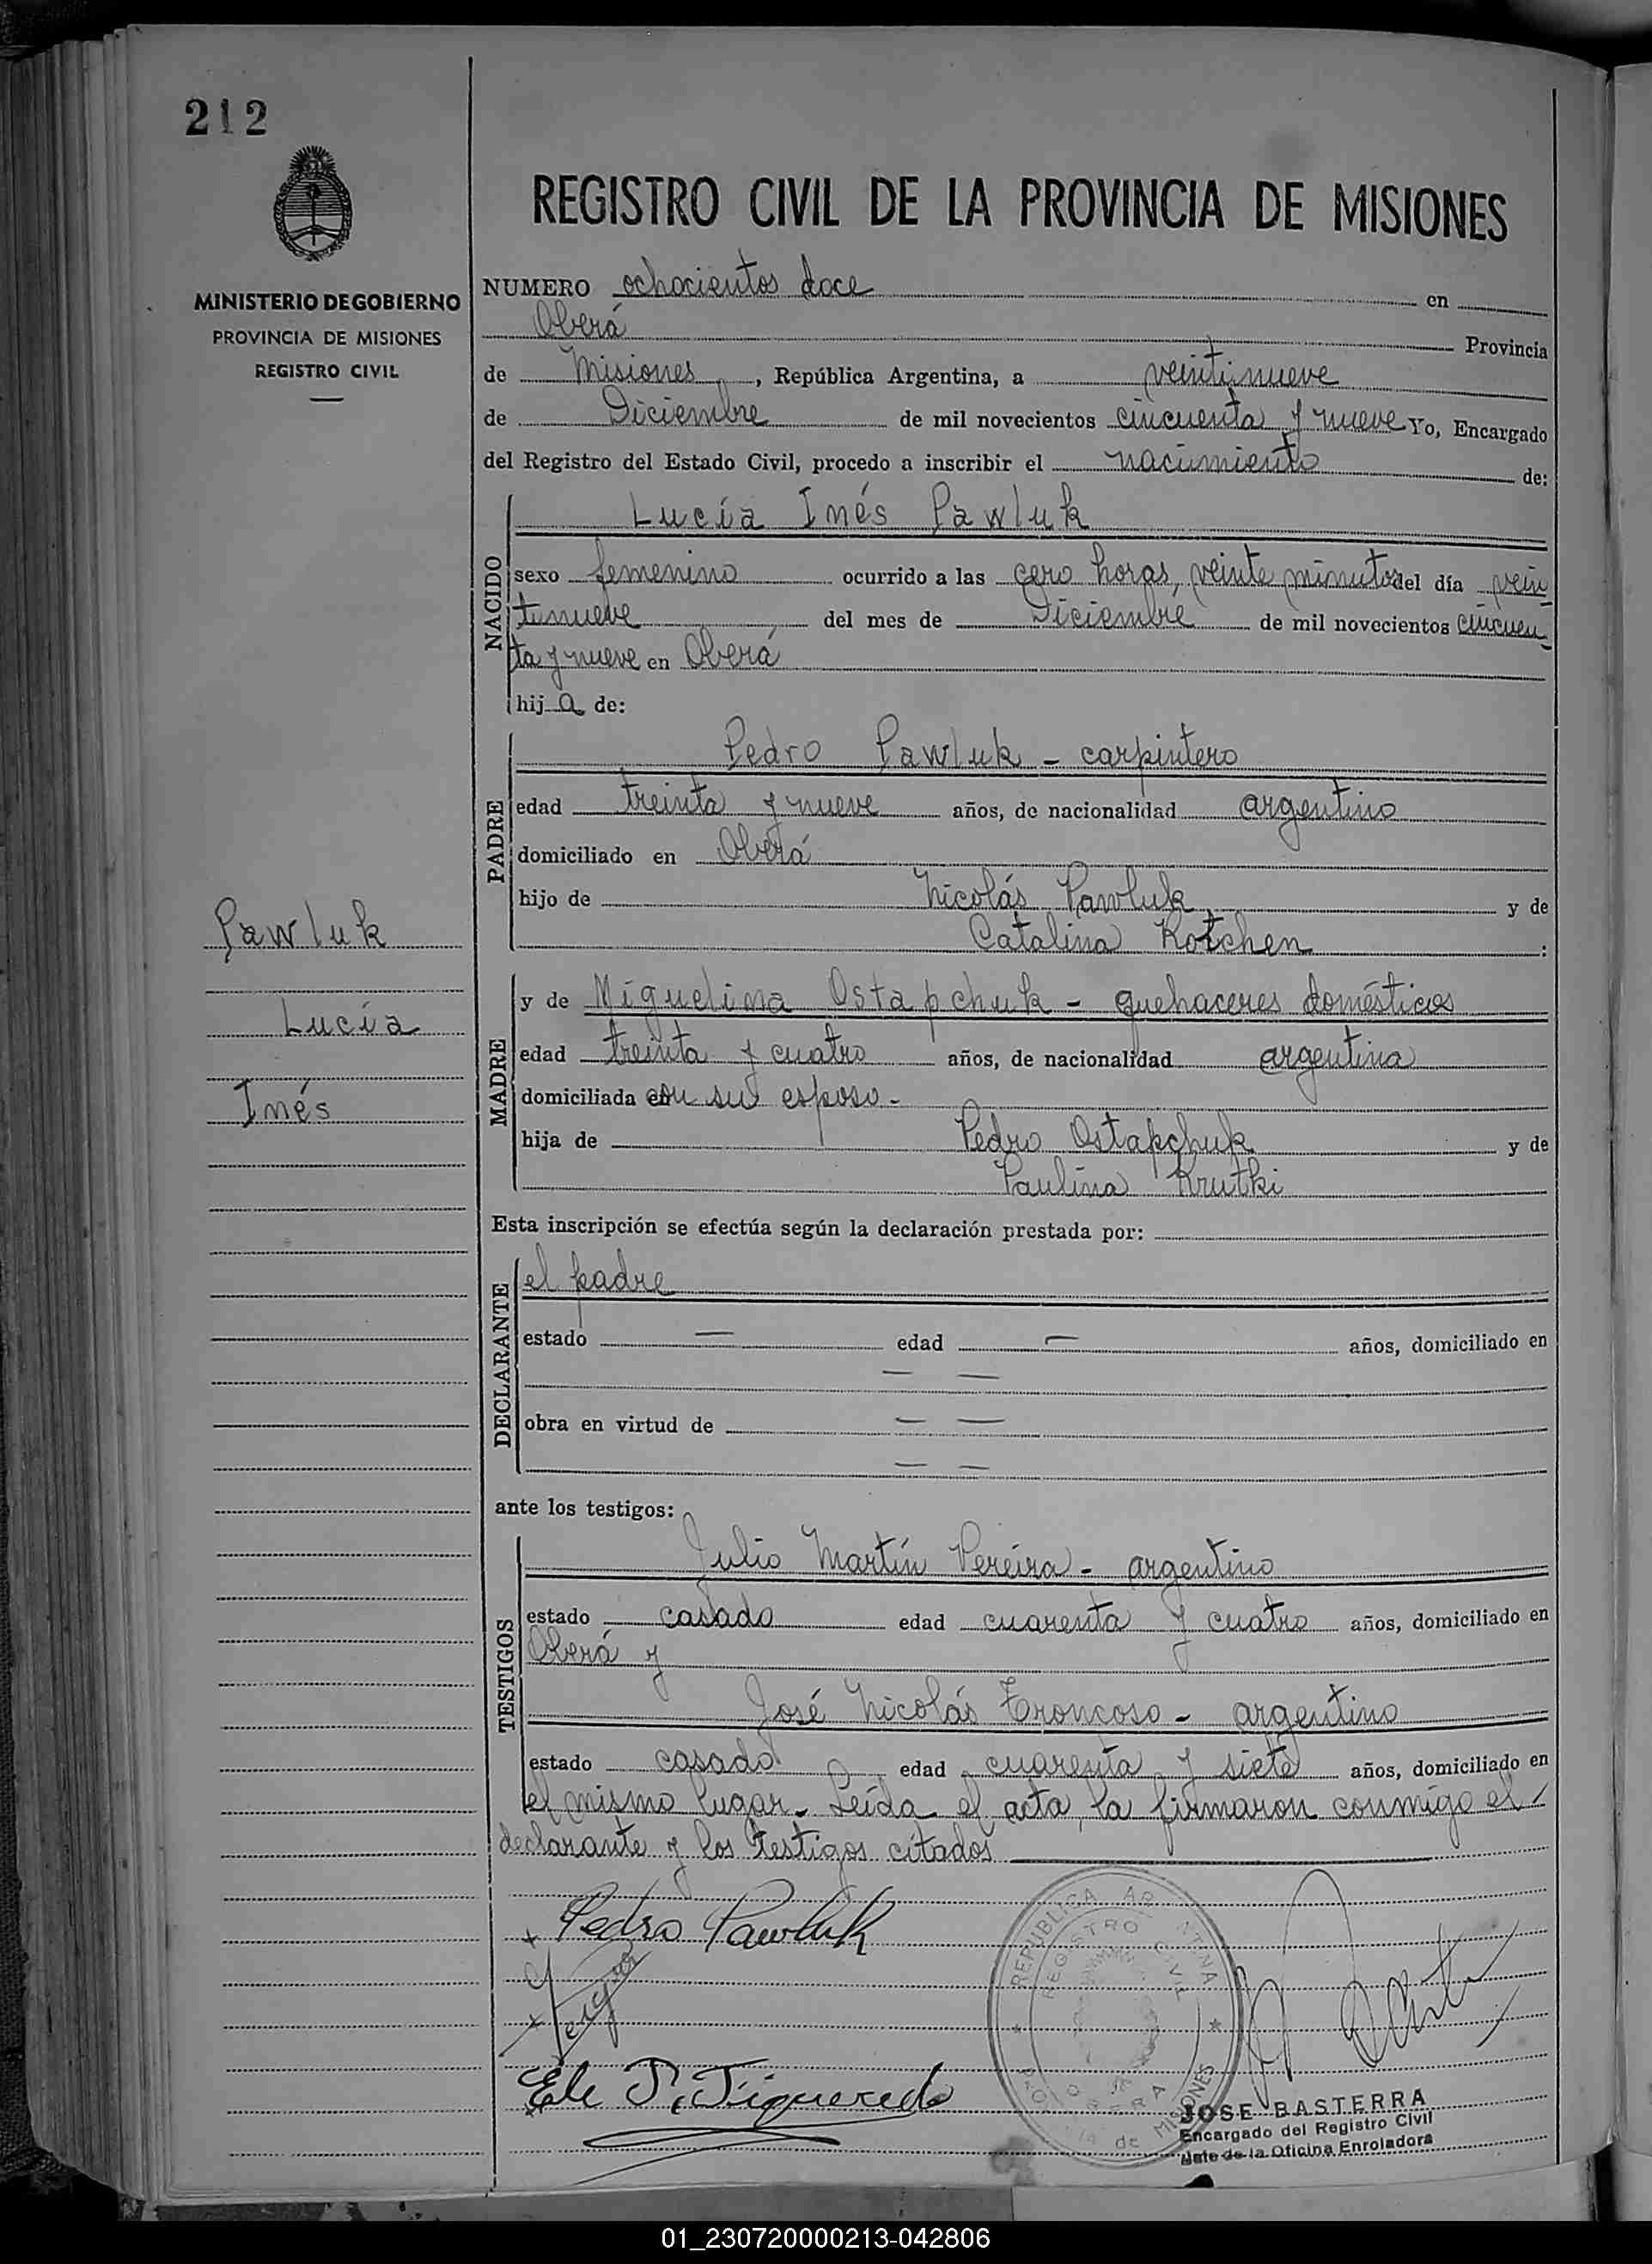 212
MINISTERIO DE GOBIERNO
PROVINCIA DE MISIONES
REGISTRO CIVIL
REGISTRO CIVIL DE LA PROVINCIA DE MISIONES
NUMERO ochocientos doce en
Oberá Provincia
de Misiones, República Argentina, a veintinueve
de Diciembre de mil novecientos cincuenta y nueve Yo, Encargado
del Registro del Estado Civil, procedo a inscribir el nacimiento de:
Lucía Inés Pawluk
NACIDO
sexo femenino ocurrido a las cero horas, veinte minutos del día vein
tinueve del mes de Diciembre de mil novecientos cincuen
ta y nueve en Oberá
hij a de:
Pedro Pawluk - carpintero
PADRE
edad treinta y nueve años, de nacionalidad argentino
domiciliado en Oberá
hijo de Nicolás Pawluk y de
Catalina Kotchen :
Pawluk
Lucía
Inés
y de Miguelina Ostapchuk - quehaceres domésticos
MADRE
edad treinta y cuatro años, de nacionalidad argentina
domiciliada con su esposo.-
hija de Pedro Ostapchuk y de
Paulina Krutki
Esta inscripción se efectúa según la declaración prestada por:
DECLARANTE
el padre
estado — edad — años, domiciliado en
— —
obra en virtud de — —
— —
ante los testigos:
TESTIGOS
Julio Martín Pereira - argentino
estado casado edad cuarenta y cuatro años, domiciliado en
Oberá y
José Nicolás Troncoso - argentino
estado casado edad cuarenta y siete años, domiciliado en
el mismo lugar.- Leída el acta, la firmaron conmigo el
declarante y los testigos citados
Pedro Pawluk
REPUBLICA ARGENTINA
REGISTRO CIVIL
OBERA
MISIONES
JOSE BASTERRA
Encargado del Registro Civil
Jefe de la Oficina Enroladora
01_230720000213-042806